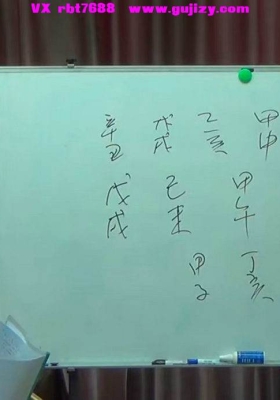 VX rbt7688 www.gujizy.com
甲申
乙亥
戊戌
辛丑
甲午
己未
戊戌
丁亥
甲子